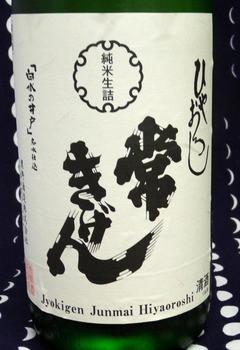 ひやおろし
純米生詰
常きげん
「白水の井戸」名水仕込
清酒
Jyokigen Junmai Hiyaoroshi